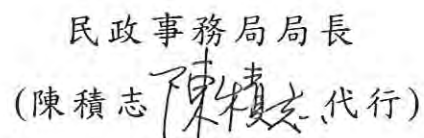 民政事務局局長
(陳積志 陳積志 代行)